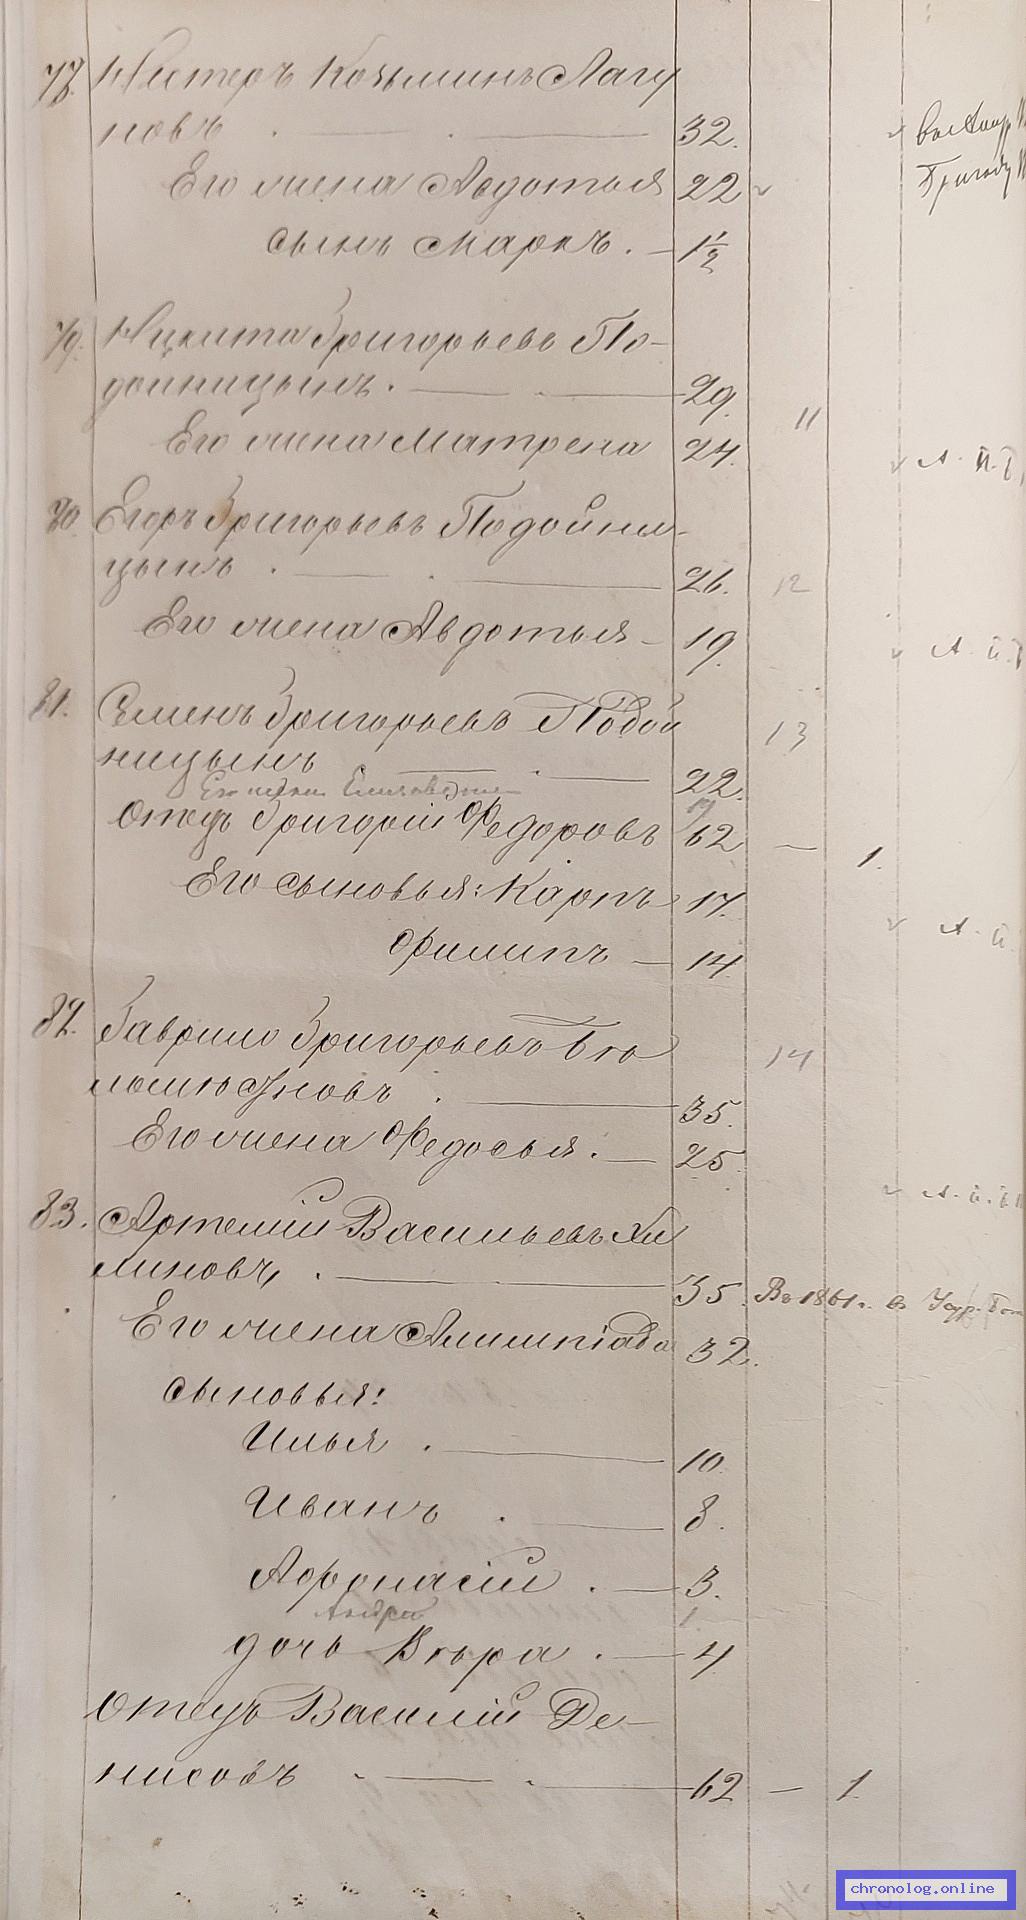 78. Нестеръ Козьминъ Лагу
новъ . — . — 32.
Его жена Авдотья 22
сынъ Маркъ . — 1 1/2
79. Никита Григорьевъ По-
дойницынъ . — . — 29.
11
Его жена Матрена 24.
А. П.
80. Егоръ Григорьевъ Подойни-
цынъ . — . — 26.
12
Его жена Авдотья — 19.
А. П.
81. Семенъ Григорьевъ Подой
13
ницынъ — . — 22.
Его жена Елизавета 19
Отецъ Григорій Федоровъ 62 — 1.
Его сыновья: Карпъ 17.
А. П.
Филипъ — 14.
82. Гаврило Григорьевъ Бѣ
14
ломюсновъ . — 35.
Его жена Федосья . — 25.
А. П.
83. Артемій Васильевъ Хи
линовъ, . — 35. Въ 1861 г. в
Его жена Алимпіада 32.
сыновья:
Илья . — 10.
Иванъ . — 8.
Афонасій . — 3.
Андрей 1
дочь Вѣра . — 4
Отецъ Василій Де-
нисовъ . — . — 62 — 1.
chronolog.online